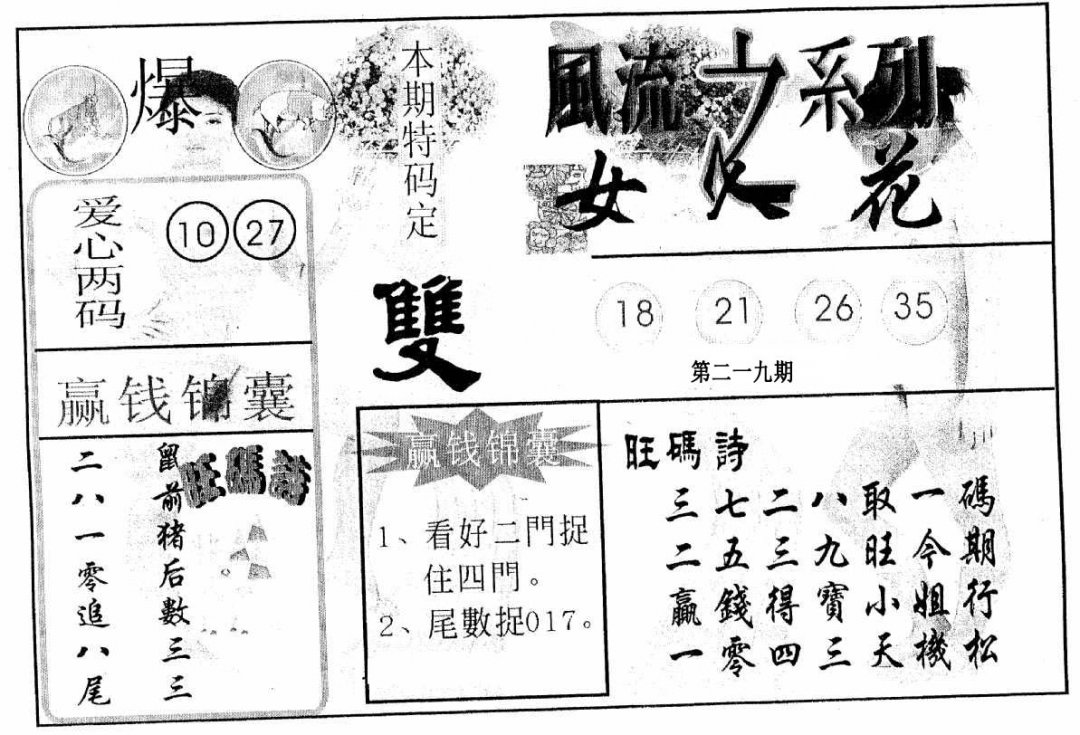 爆
爱心两码
10 27
赢钱锦囊
旺碼詩
鼠前猪后數三三
二八一零追八尾
本期特码定
雙
風流之系列
女人花
18 21 26 35
第二一九期
赢钱锦囊
1、看好二門捉
住四門。
2、尾數捉017。
旺碼詩
三七二八取一碼
二五三九旺今期
贏錢得寶小姐行
一零四三天機松